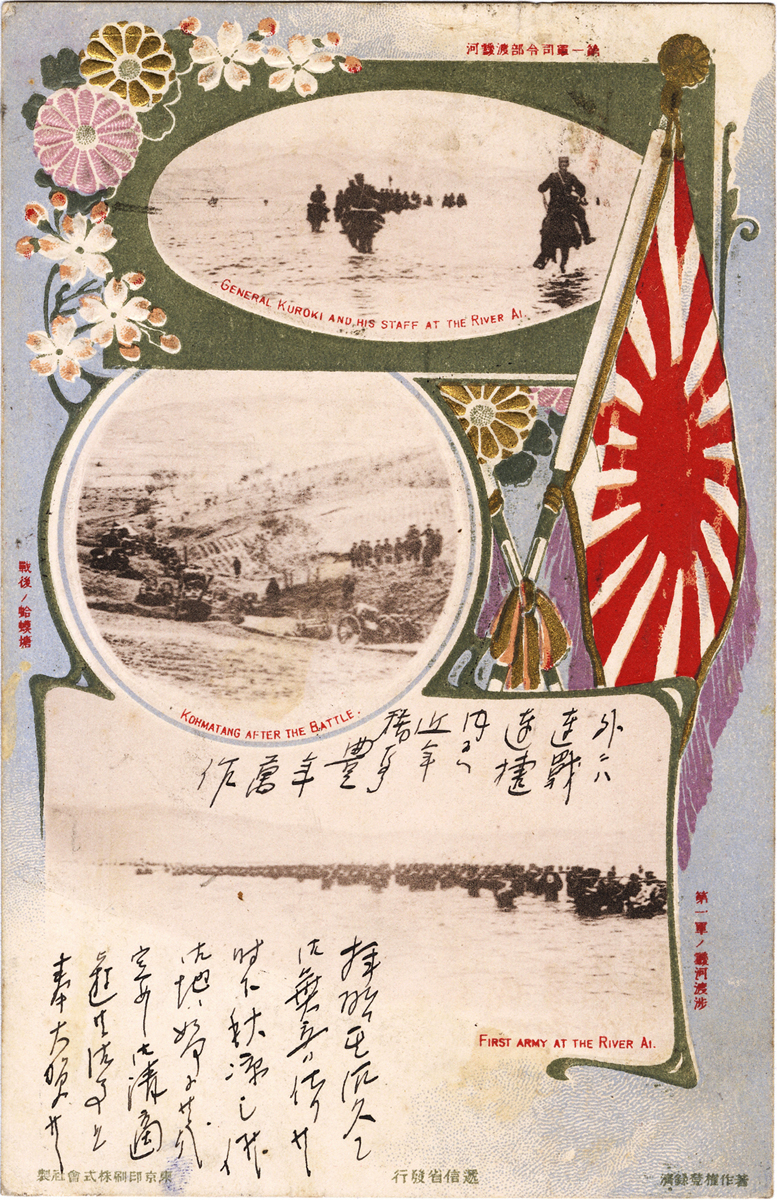 第一軍司令部渡靉河
GENERAL KUROKI AND HIS STAFF AT THE RIVER AI.
戰後ノ蛤蟆塘
KOHMATANG AFTER THE BATTLE.
外ニハ
連戰
連捷
近年
豊
年
萬
作
第一軍ノ靉河渡渉
FIRST ARMY AT THE RIVER AI.
拝啓其后久々
御無音
時下秋冷之候
御地ハ如何
御清適
奉大賀
著作權登錄濟
遞信省發行
東京印刷株式會社製